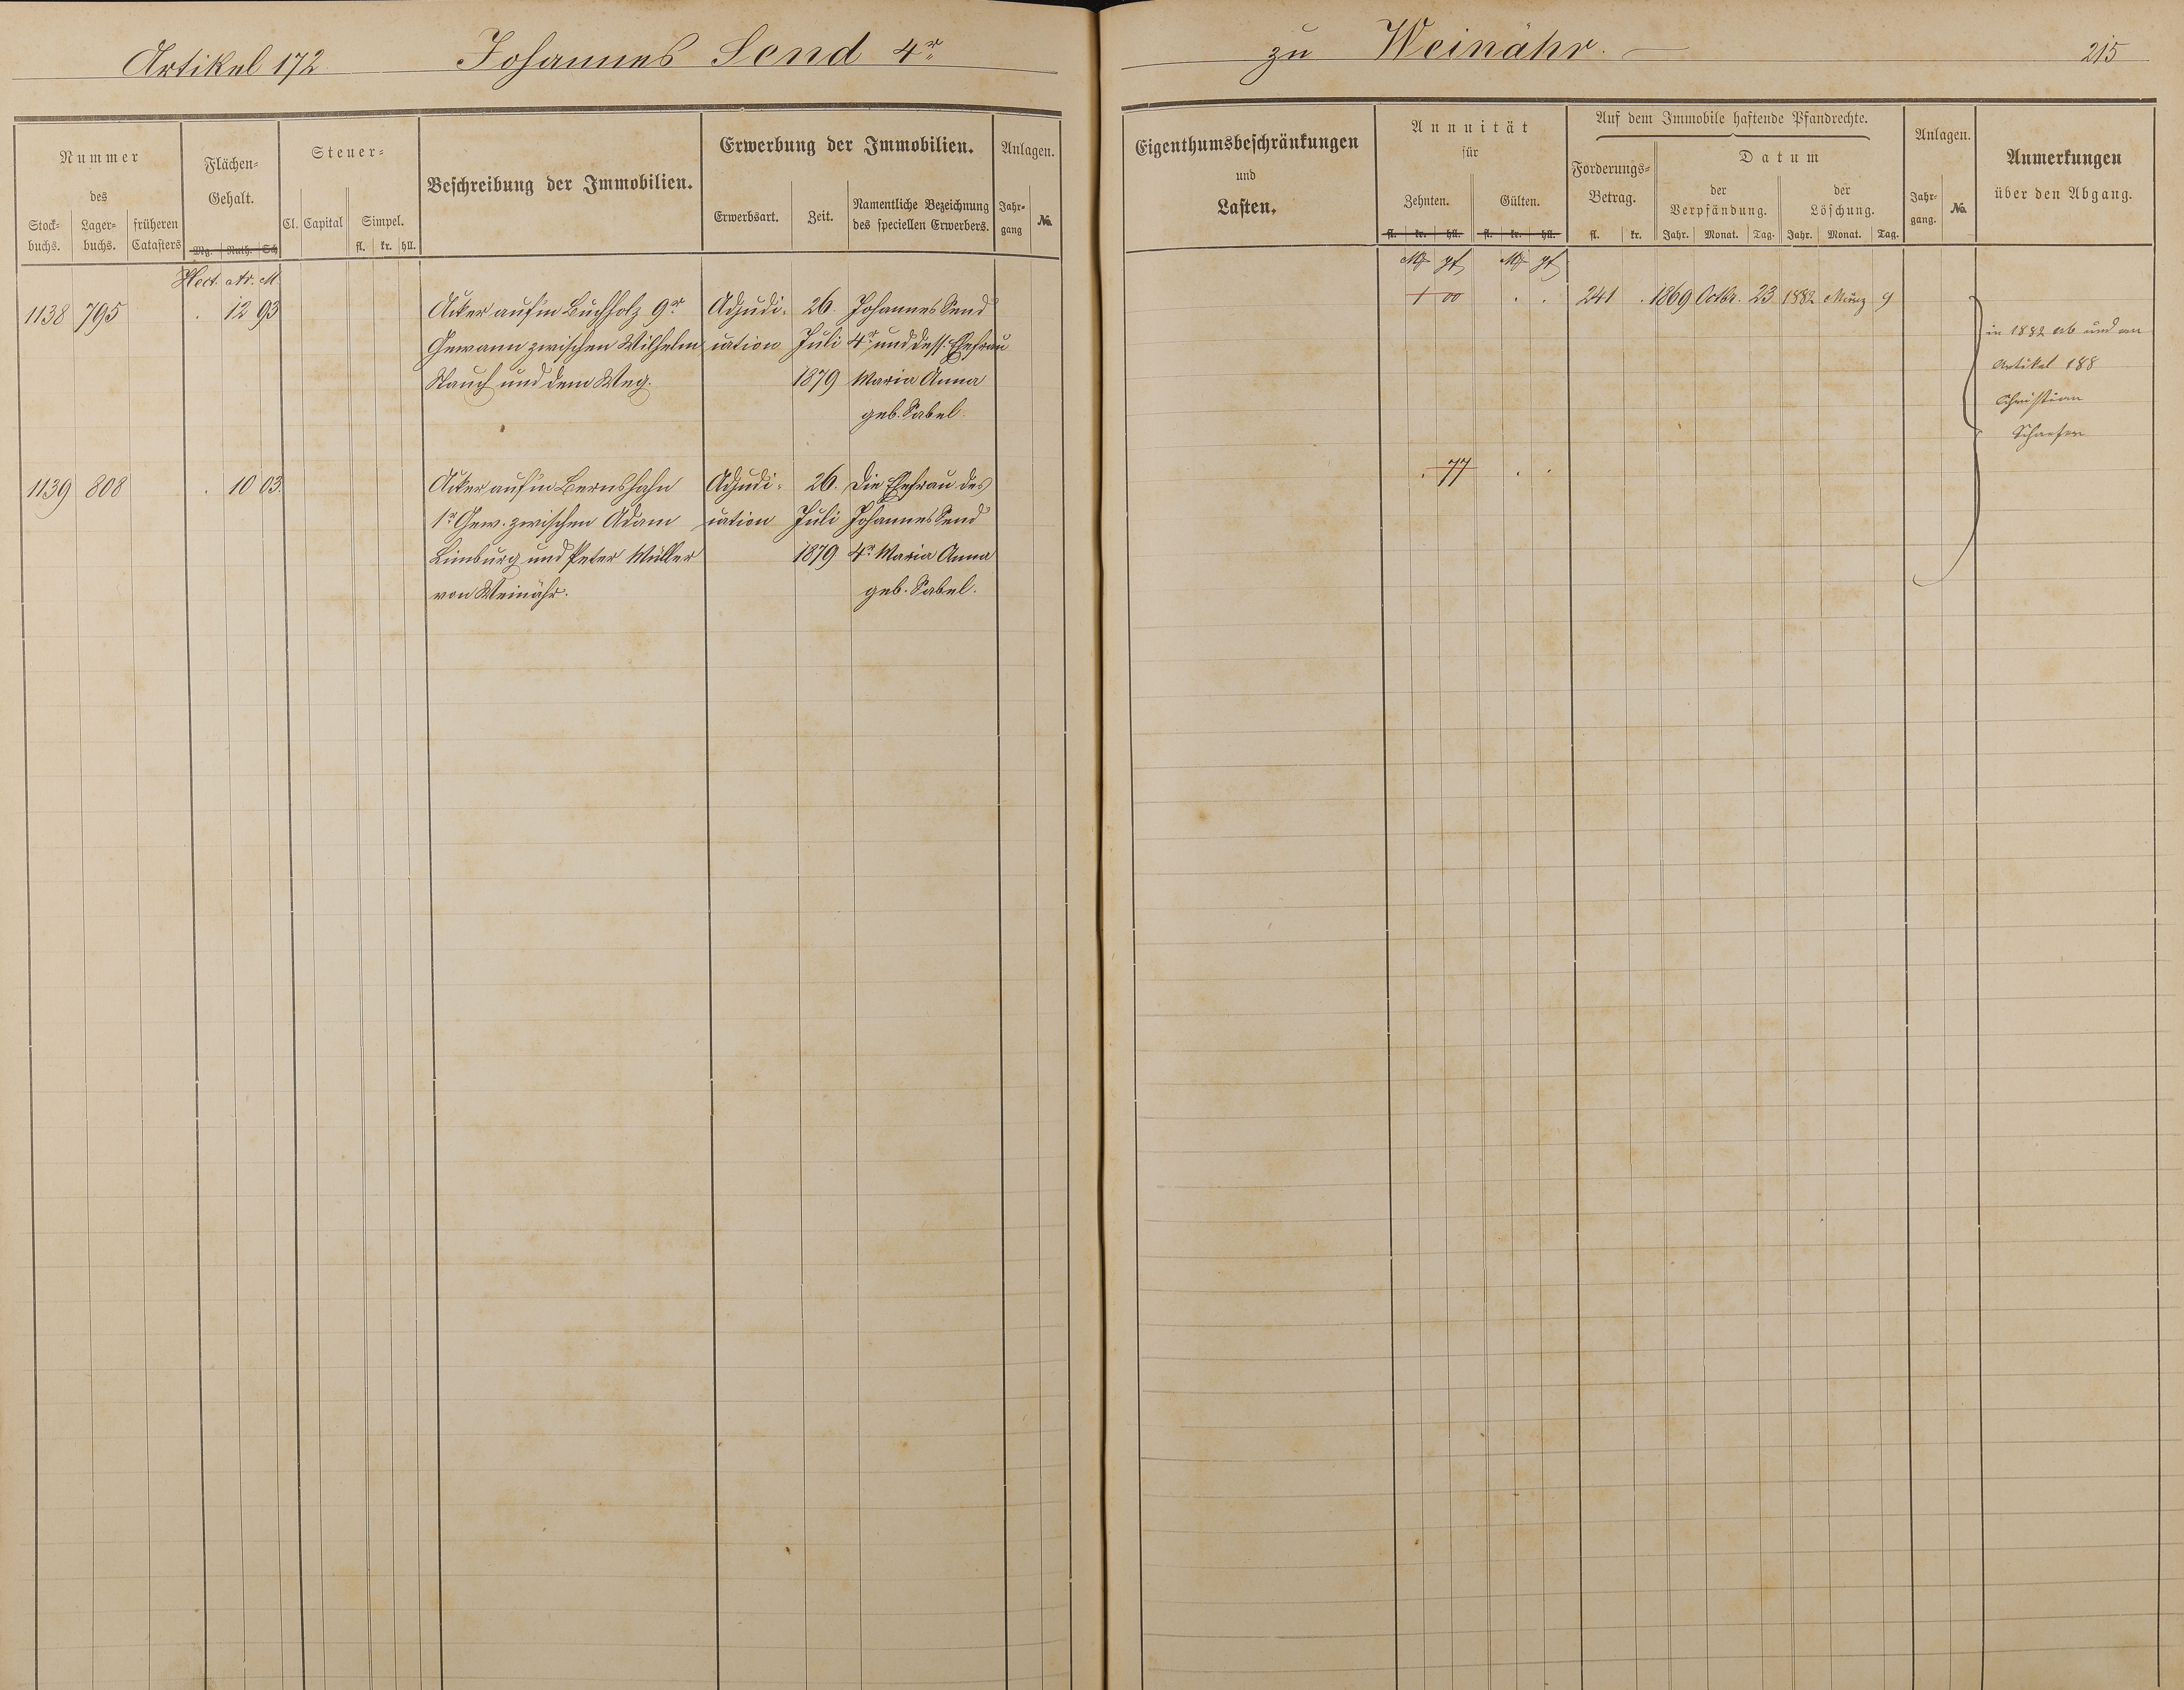 Artikel 172 Johannes Send 4r zu Weinähr. 215
Nummer
des
Stock-buchs. Lager-buchs. früheren Catasters
Flächen-Gehalt.
Mg. Ruth. Sch
Steuer-
Cl. Capital Simpel.
fl. kr. hll.
Beschreibung der Immobilien.
Erwerbung der Immobilien.
Erwerbsart. Zeit. Namentliche Bezeichnung des speciellen Erwerbers.
Anlagen.
Jahr-gang No.
Eigenthumsbeschränkungen
und
Lasten.
Annuität
für
Zehnten. Gülten.
fl. kr. hll. fl. kr. hll.
Auf dem Immobile haftende Pfandrechte.
Forderungs-Betrag.
fl. kr.
Datum
der Verpfändung. der Löschung.
Jahr. Monat. Tag. Jahr. Monat. Tag.
Anlagen.
Jahr-gang. No.
Anmerkungen
über den Abgang.
Hect. Ar. M.
M pf M pf
1138 795 . 12 93 Acker auf'm Buchholz 9r Adjudi- 26 Johannes Send 1 00 . . 241 . 1869 Octbr. 23 1882 März 9
Gewann zwischen Wilhelm cation Juli 4r und dess. Ehefrau
Rauch und dem Weg. 1879 Maria Anna
geb. Sabel.
in 1882 ab und an
Artikel 188
Christian
1139 808 . 10 03. Acker auf'm Bernshahn Adjudi- 26. Die Ehefrau des . 77 . .
1r Gew. zwischen Adam cation Juli Johannes Send
Limburg und Peter Müller 1879 4r Maria Anna
von Weinähr. geb. Sabel.